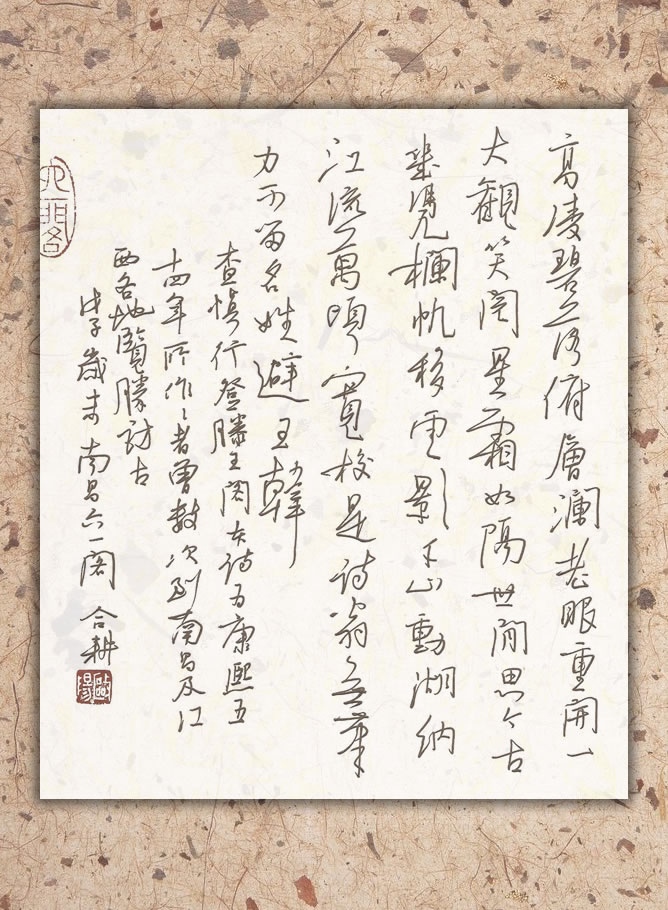 高凌碧落俯層瀾老眼重開一
大觀笑閱星霜如隔世閒思今古
幾憑欄帆移雲影千山動湖納
江流萬頃寬校是詩翁無筆
力不留名姓避王韓
查慎行登滕王閣本詩为康熙五
十四年所作作者曾數次到南昌及江
西各地覽勝訪古
戊子歲末南昌六一閣 合耕